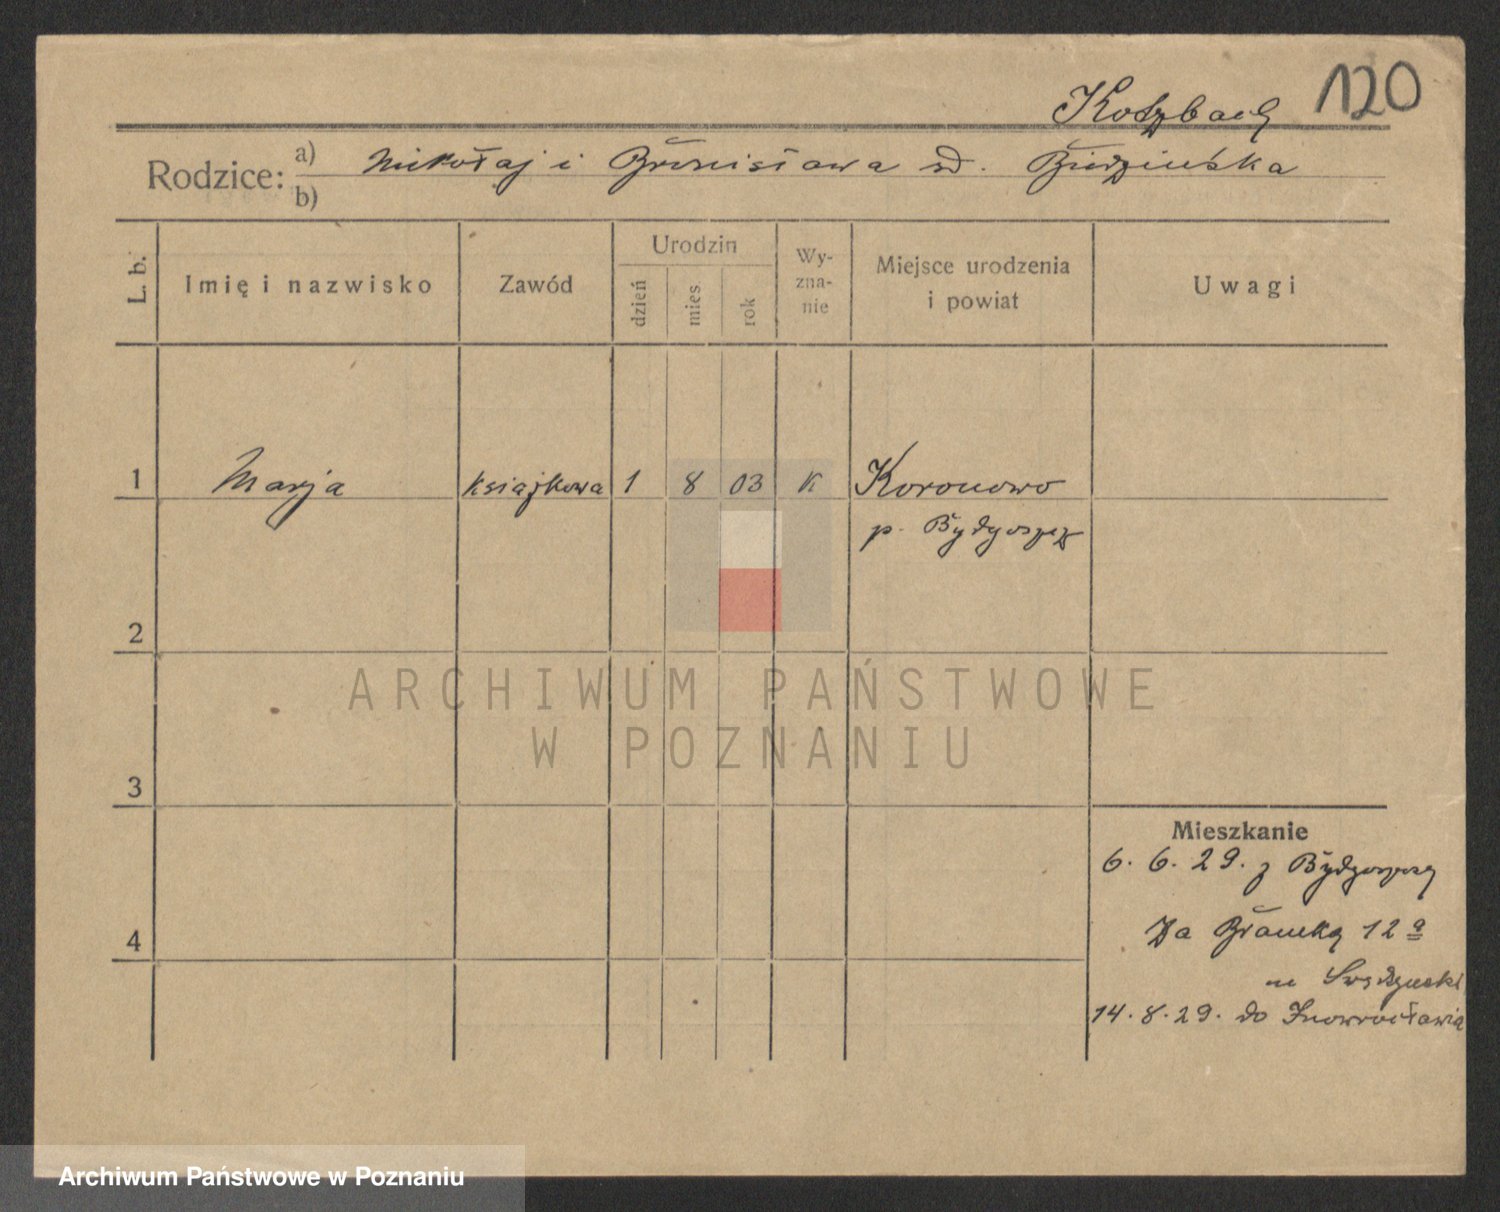 120
Kotzbach
Rodzice: a) Mikołaj i Bronisława zd. Budzińska
b)
L. b.
Imię i nazwisko
Zawód
Urodzin
dzień
mies
rok
Wy-
zna-
nie
Miejsce urodzenia
i powiat
Uwagi
1 Marja książkowa 1 8 03 K Koronowo
p. Bydgoszcz
2
3
4
Mieszkanie
6. 6. 29. z Bydgoszczy
Za Bramką 12 a
14. 8. 29. do Inowrocławia
ARCHIWUM PAŃSTWOWE
W POZNANIU
Archiwum Państwowe w Poznaniu